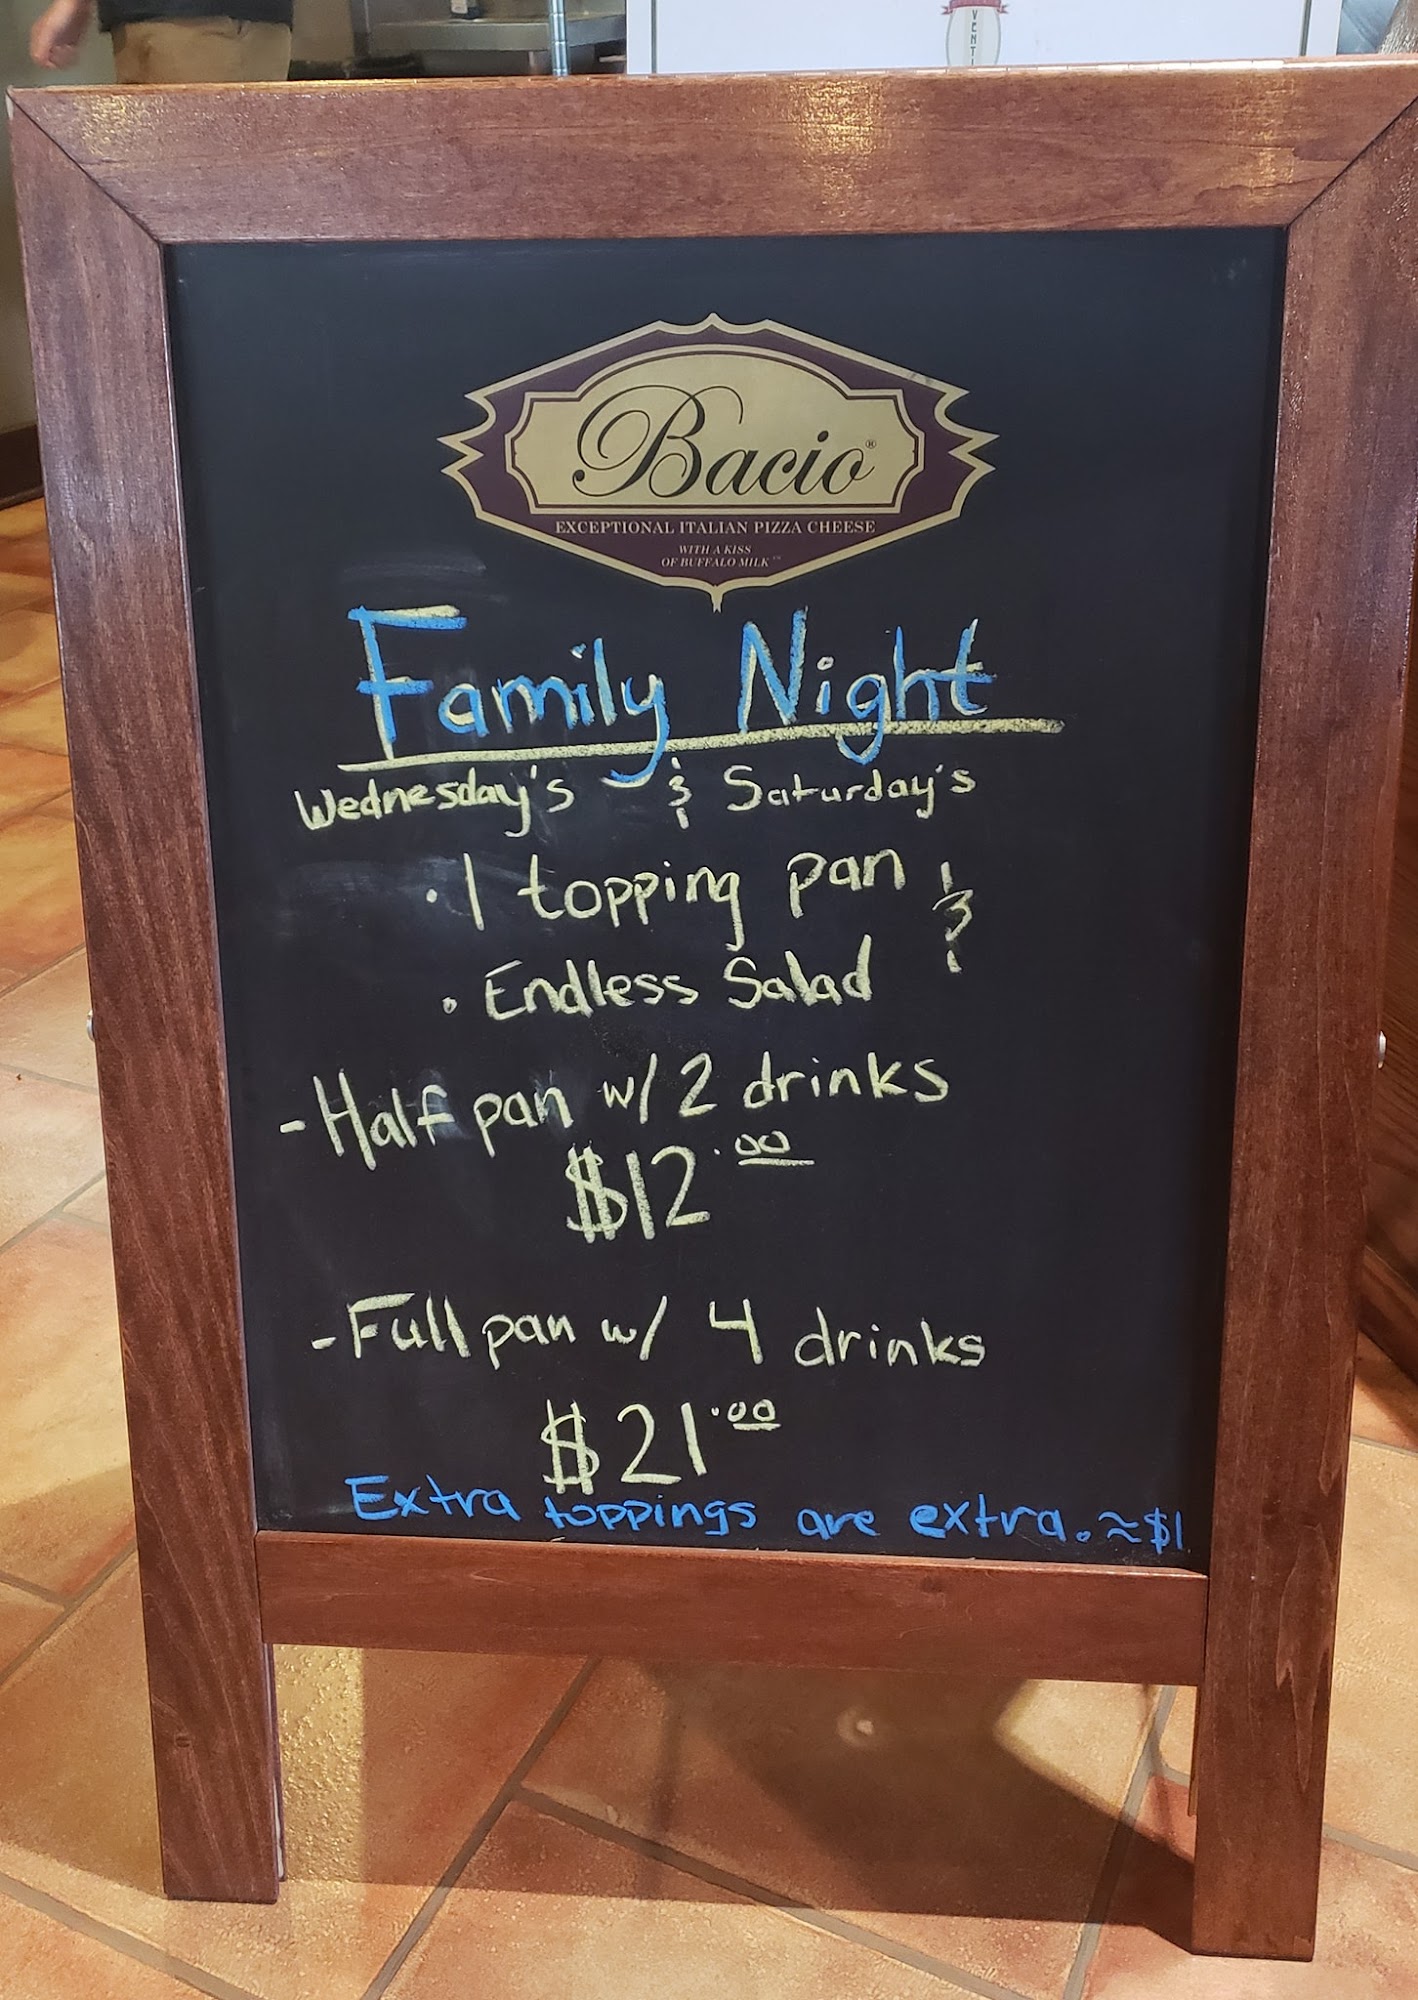 VENTI
Bacio®
EXCEPTIONAL ITALIAN PIZZA CHEESE
WITH A KISS
OF BUFFALO MILK™
Family Night
Wednesday's & Saturday's
• 1 topping pan &
• Endless Salad
- Half pan w/ 2 drinks
$12.00
- Full pan w/ 4 drinks
$21.00
Extra toppings are extra. ≈$1